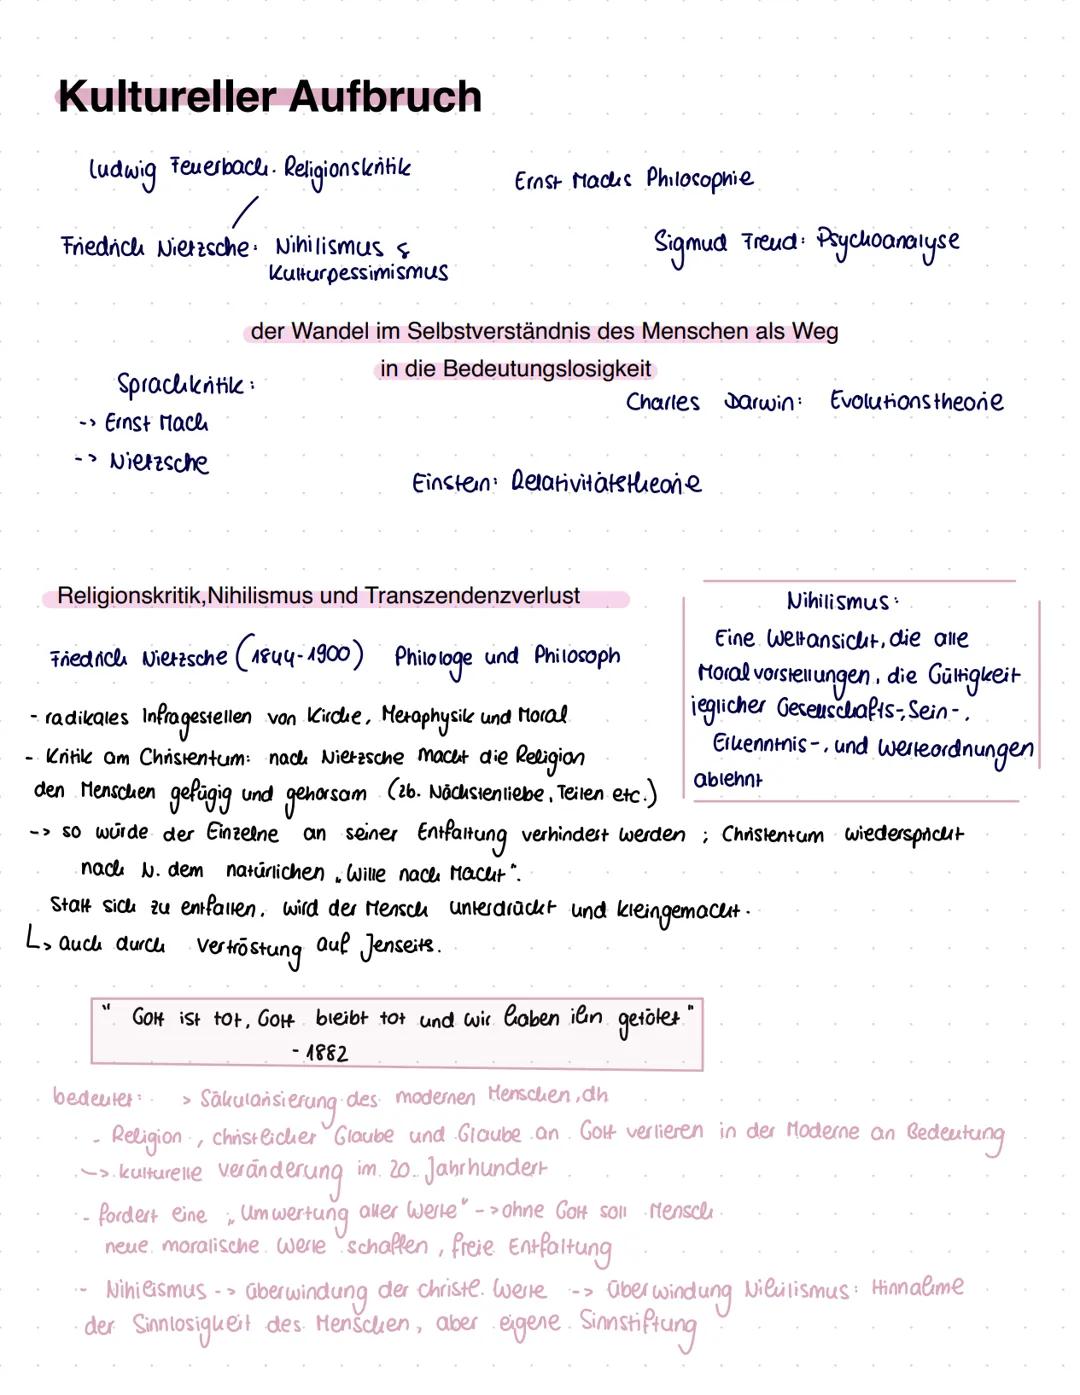 Kultureller Aufbruch
Ludwig Feuerbach: Religionskritik
Ernst Machs Philosophie
Friedrich Nietzsche: Nihilismus &
Kulturpessimismus
Sigmud Freud: Psychoanalyse
der Wandel im Selbstverständnis des Menschen als Weg
in die Bedeutungslosigkeit
Sprachkritik:
-> Ernst Mach
-> Nietzsche
Charles Darwin: Evolutionstheorie
Einstein: Relativitätstheorie
Religionskritik,Nihilismus und Transzendenzverlust
Friedrich Nietzsche (1844-1900) Philologe und Philosoph
- radikales Infragestellen von Kirche, Metaphysik und Moral
- Kritik am Christentum: nach Nietzsche macht die Religion
den Menschen gefügig und gehorsam (zb. Nächstenliebe, Teilen etc.)
-> so würde der Einzelne an seiner Entfaltung verhindert werden ; Christentum wiederspricht
nach N. dem natürlichen „Wille nach Macht".
Statt sich zu entfalten, wird der Mensch unterdrückt und kleingemacht.
↳ auch durch Vertröstung auf Jenseits.
Nihilismus:
Eine Weltansicht, die alle
Moralvorstellungen, die Gültigkeit
jeglicher Gesellschafts-, Sein-,
Erkenntnis-, und Werteordnungen
ablehnt
" Gott ist tot, Gott bleibt tot und wir haben ihn getötet "
- 1882
bedeutet: > Säkularisierung des modernen Menschen, dh
- Religion, christlicher Glaube und Glaube an Gott verlieren in der Moderne an Bedeutung
-> kulturelle Veränderung im 20. Jahrhundert
- fordert eine „Umwertung aller Werte" -> ohne Gott soll Mensch
neue moralische Werte schaffen, freie Entfaltung
- Nihilismus -> Überwindung der christl. Werte -> Überwindung Nihilismus: Hinnahme
der Sinnlosigkeit des Menschen, aber eigene Sinnstiftung